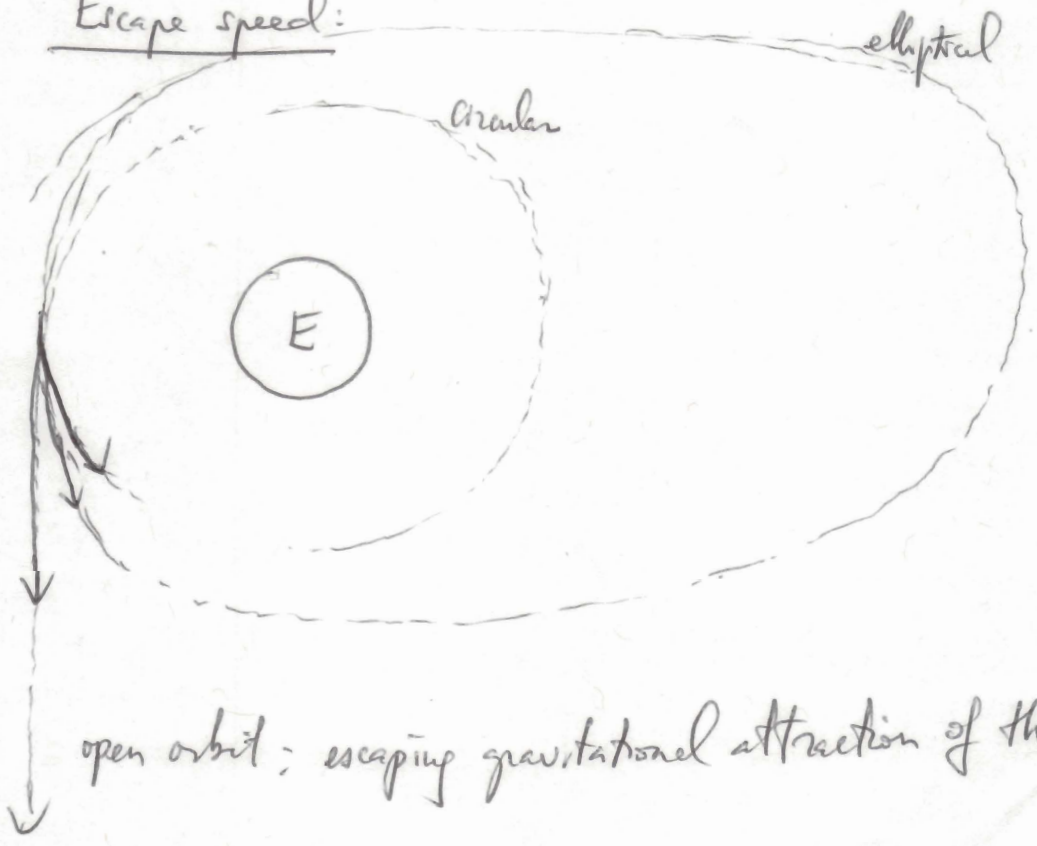 Escape speed:
elliptical
circular
E
open orbit; escaping gravitational attraction of th